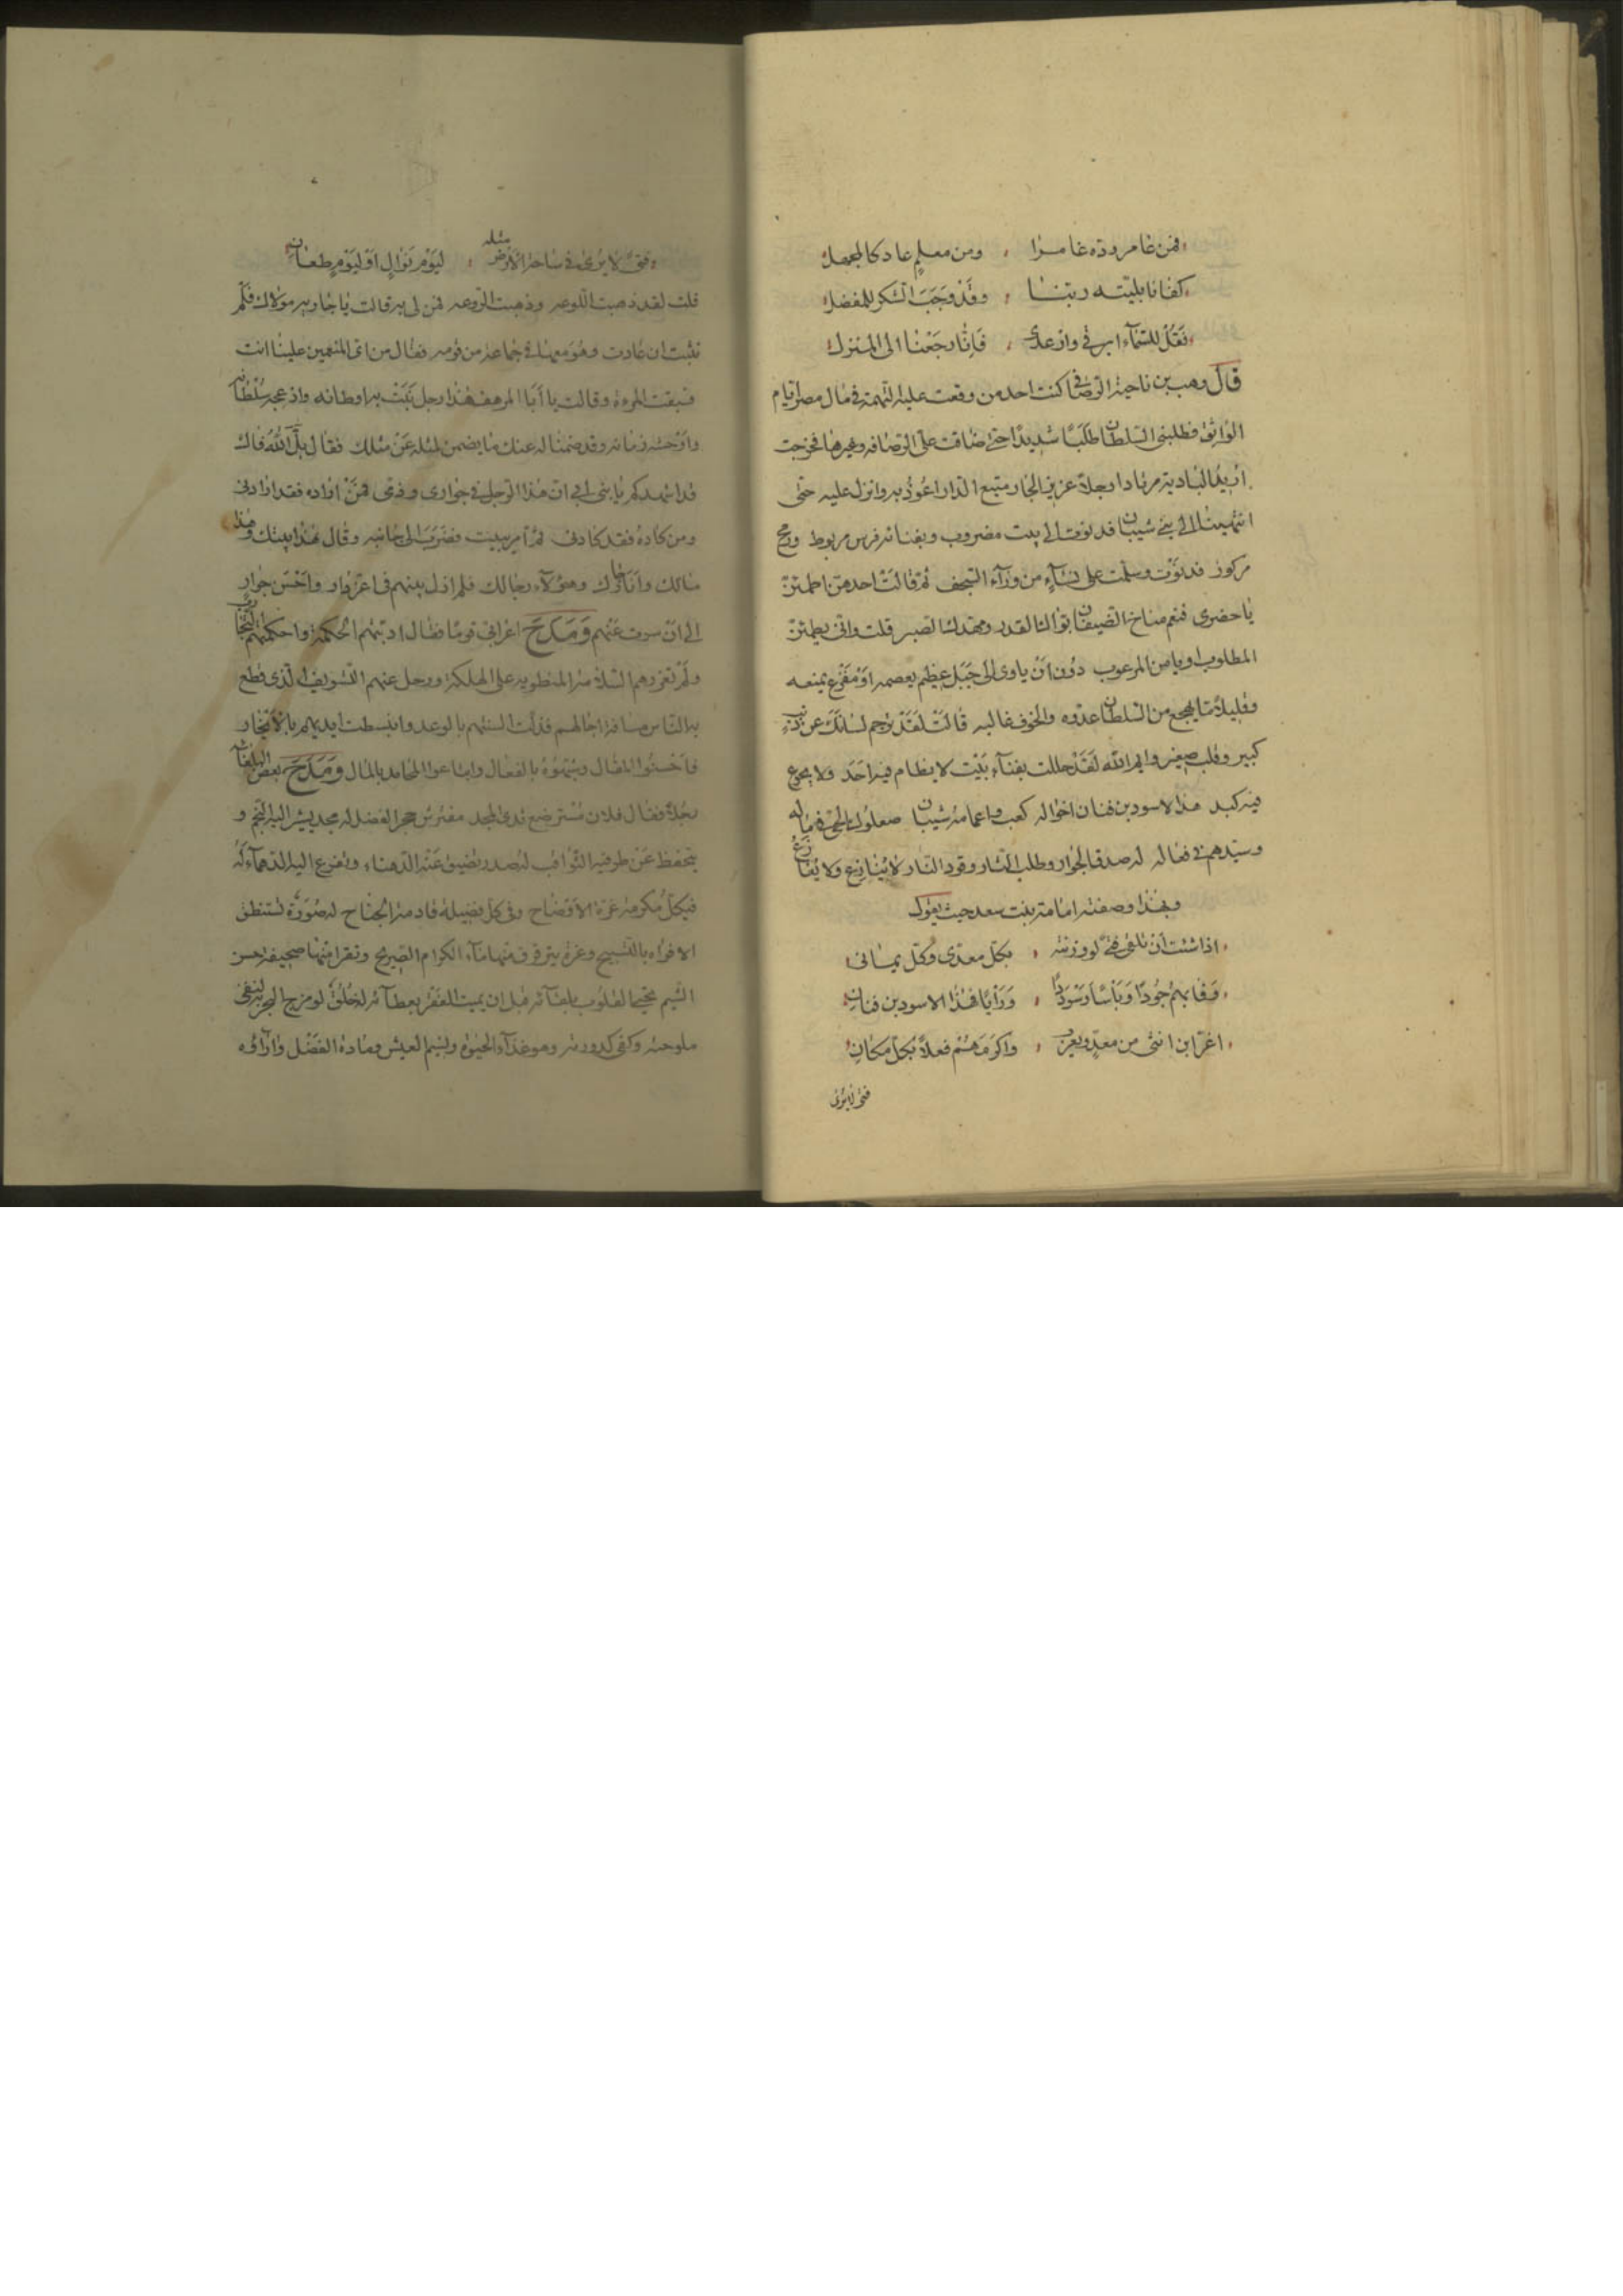 فمن غامر ردّه غامرا ، ومن معلم عاد كالمجهل
كفانا ببليته ربنا ، وقد وجب الشكر للمفضل
فقل للسماء ابرقي وارعدي ، فانا رجعنا الى المنزل
قال وهب بن ناجية الرصافي كنت احد من وقعت عليه التهمة في مال مصر ايام
الواثق فطلبني السلطان طلبا شديدا حتى ضاقت علي الرصافه وغيرها فخرجت
اريد البادية مرتادا رجلا عزيز الجار منيع الدار اعوذ به وانزل عليه حتى
انتهيت الى بني شيبان فدنوت الى بيت مضروب وبفنائه فرس مربوط ورمح
مركوز فدنوت وسلمت على نساء من وراء السجف ثم قالت احدهن اطمئن
يا حضري فنعم مناخ الضيفان بوا لك القدر ومهد لك الصبر قلت واني يطمئن
المطلوب او يامن المرعوب دون ان ياوى الى جبل عظيم يعصمه او مفزع يمنعه
وقليلا ما يهجع من السلطان عدوه والخوف غالبه قالت لقد ترجم لسانك عن ذنب
كبير وقلب صغير وايم الله لقد حللت بفناء بيت لا يظام فيه احد ولا يجوع
فيه كبد هذا الاسود بن فنان اخواله كعب واعمامه شيبان صعلوك الحي في ماله
وسيدهم في فعاله له صدق الجوار وطلب الثار وقود النار لا ينازع ولا يقارع
وبهذا وصفته امامة بنت سعد حيث يقول
اذا شئت ان تلقى فتى لو وزنته ، بكل معدّي وكل يماني
وفا بهم جودا وباسا وسوددا ، ورايا فهذا الاسود بن فنان
اغر ابن انثى من معد ويعرب ، واكرمهم فعلا بكل مكان
فتى لا يرى
فتى لا يرى في ساحة الارض مثله ، ليوم نوال او ليوم طعان
قلت لقد ذهبت اللوعه وذهبت الروعه فمن لي به قالت يا جاريه مولاك فلم
تلبث ان عادت وهو معها في جماعة من قومه فقال من اي المنعمين علينا انت
فسبقت المرءة وقالت يا ابا المرهف هذا رجل نبت به اوطانه وازعجه سلطانه
واوحشه زمانه وقد ضمنا له عنك ما يضمن لمثله عن مثلك فقال بل الله فاك
قد اشهدكم يا بني ابي ان هذا الرجل في جواري وذمتي فمن اراده فقد ارادني
ومن كاده فقد كادني ثم امر ببيت فضرب الى جانبه وقال هذا بيتك وهذا
مالك وانا جارك وهؤلاء رجالك فلم ازل بينهم في اعز دار واحسن جوار
الى ان سرت عنهم ومدح اعرابي قوما فقال ادبتهم الحكمة واحكمتهم التجارب
ولم تغررهم السلامة المنطويه على الهلكة ورحل عنهم التسويف الذي قطع
به الناس مسافة اجالهم فذلت السنتهم بالوعد وانبسطت ايديهم بالانجاز
فاحسنوا المقال وشيموه بالفعال وابتاعوا المحامد بالمال ومدح بعض البلغاء
رجلا فقال فلان مسترضع ثدى المجد مفترش حجر الفضل له مجد يشير اليه النجم و
ينحفظ عن طرفيه الثواقب له صدر تضيق عنه الدهناء وتفزع اليه الدهماء له
في كل مكرمة غرة الاوضاح وفي كل فضيلة قادمة الجناح له صورة تستنطق
الافواه بالتسبيح وغرة يترقرق منها ماء الكرام الصريح وتقرا منها صحيفة حسن
الشيم يحيي القلوب بلقائه قبل ان يميت الفقر بعطائه له خلق لو مزج البحر به لنفى
ملوحته وكفى كدورته وهو غذاء الحيوة ونسيم العيش ومادة الفضل واراؤه